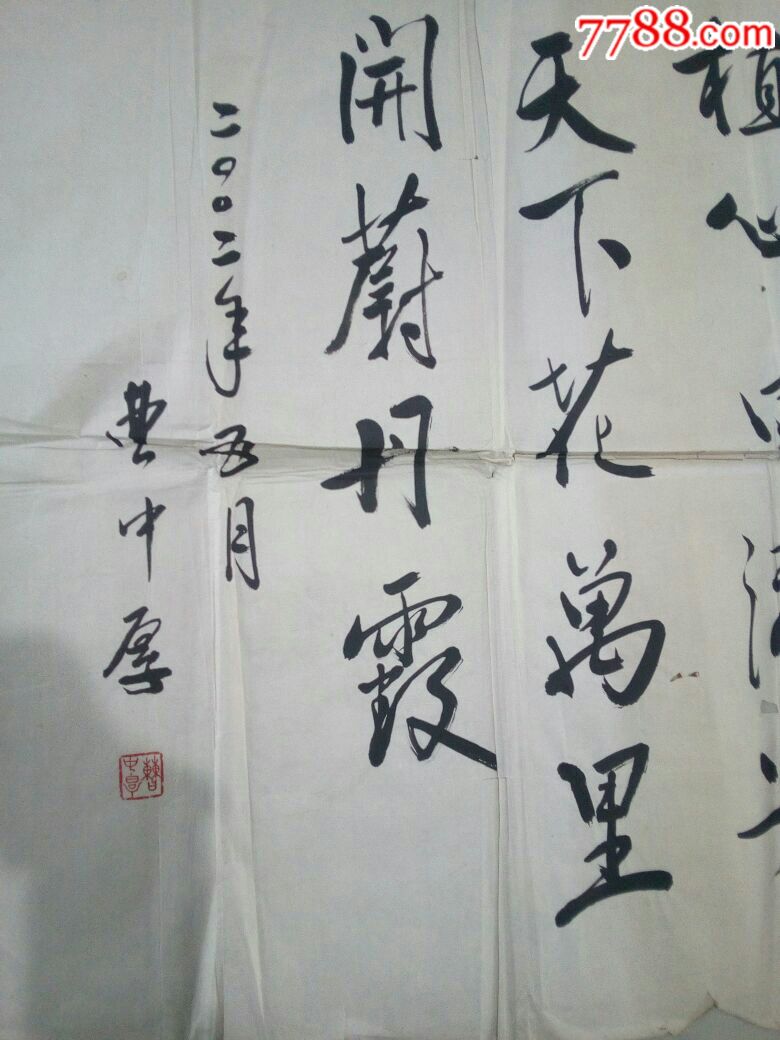 7788.com
植心
天下花萬里
開蔚丹霞
二〇〇二年五月
曹中厚